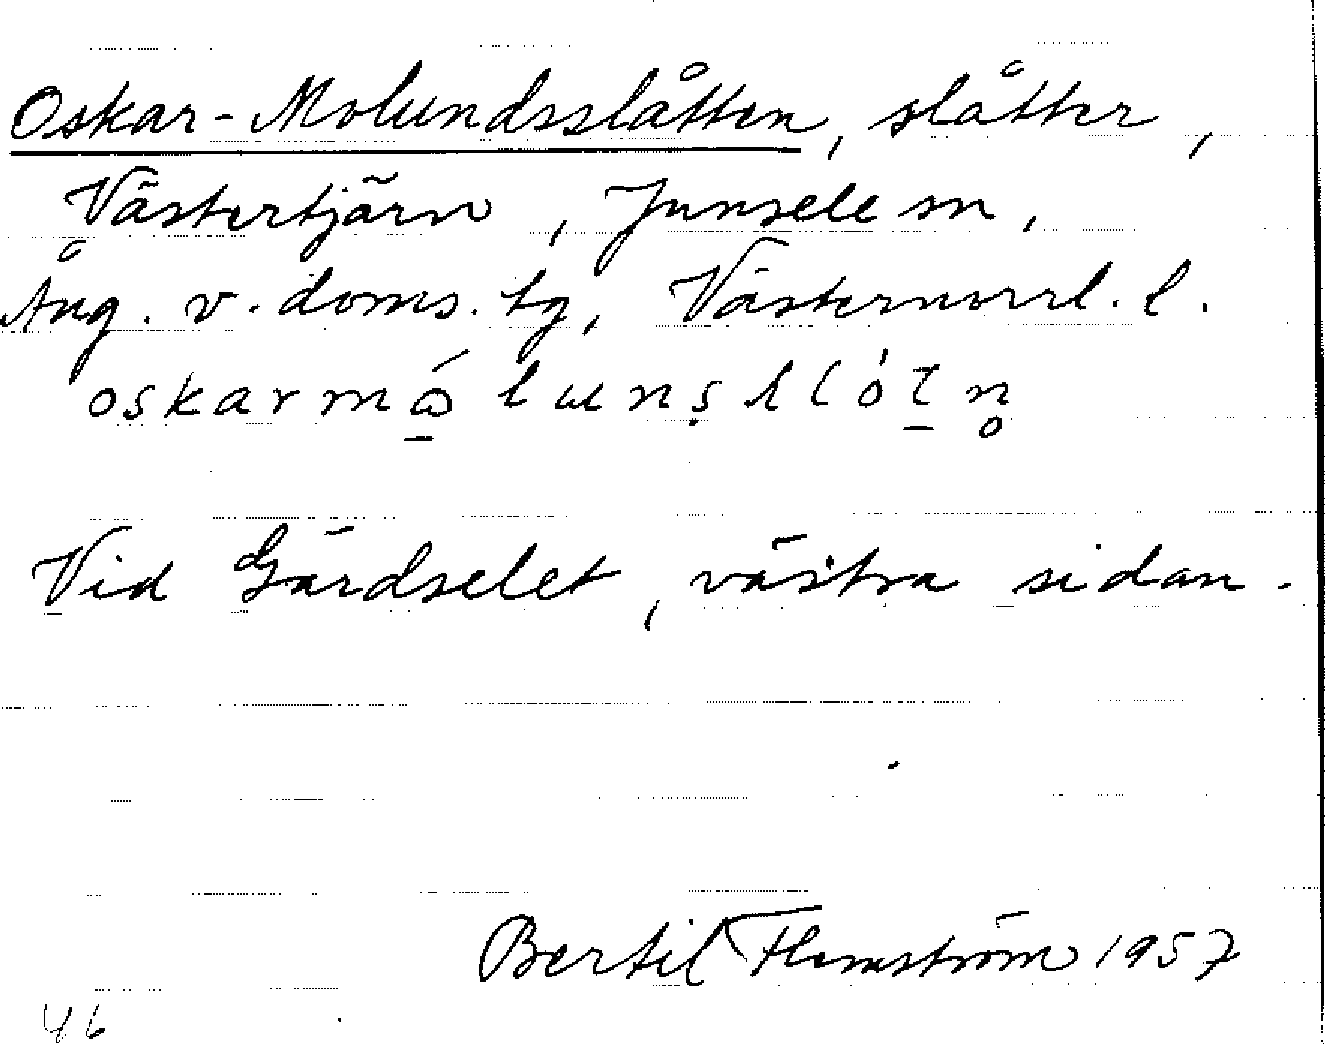 Oskar-Molundsslåtten, slåtter,
Västertjärn, Junsele sn,
Ång. v. doms. tg, Västernorrl. l.
Vid Gärdselet, västra sidan.
Bertil Flemström 1957
46